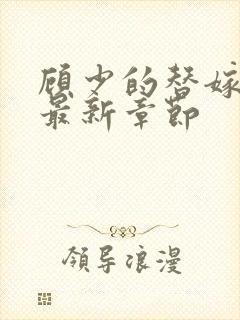 顾少的替嫁
最新章节
领导浪漫